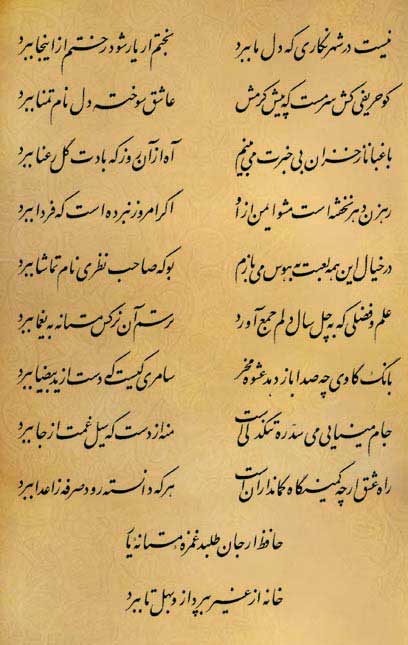 نیست در شهر نگاری که دل ما ببرد بختم ار یار شود رختم از اینجا ببرد
کو حریفی کش سرمست که پیش کرمش عاشق سوخته دل نام تمنا ببرد
باغبانا ز خزان بی خبرت می بینم آه از آن روز که بادت گل رعنا ببرد
رهزن دهر نخفته است مشو ایمن از او اگر امروز نبرده است که فردا ببرد
در خیال این همه لعبت به هوس می بازم بو که صاحب نظری نام تماشا ببرد
علم و فضلی که به چل سال دلم جمع آورد ترسم آن نرگس مستانه به یغما ببرد
بانگ گاوی چه صدا باز دهد عشوه مخر سامری کیست که دست از ید بیضا ببرد
جام مینایی می سد ره تنگ دلی است منه از دست که سیل غمت از جا ببرد
راه عشق ار چه کمینگاه کمانداران است هر که دانسته رود صرفه ز اعدا ببرد
حافظ ار جان طلبد غمزه مستانه یار
خانه از غیر بپرداز و بهل تا ببرد